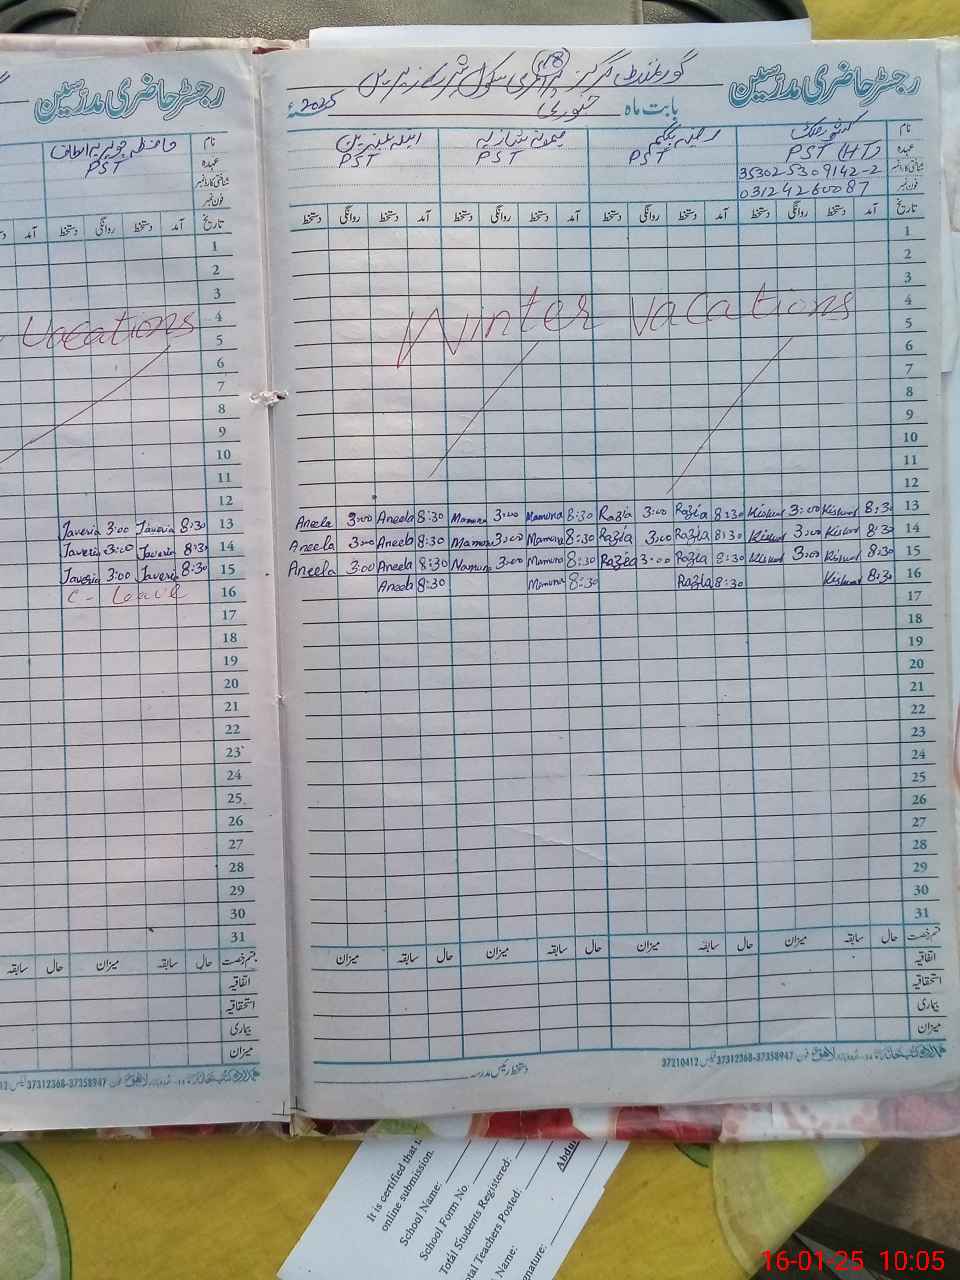 رجسٹر حاضری مدرسین
گورنمنٹ گرلز پرائمری سکول
بابت ماہ جنوری 2025ء
نام
عہدہ PST (HT) PST PST PST
شناختی کارڈ نمبر 353025309142-2
فون نمبر 03124260087
تاریخ آمد دستخط روانگی دستخط آمد دستخط روانگی دستخط آمد دستخط روانگی دستخط آمد دستخط روانگی دستخط
1
2
3
4
Winter vacations
5
6
7
8
9
10
11
12
Aneela 3:00 Aneela 8:30 Mamuna 3:00 Mamuna 8:30 Razia 3:00 Razia 8:30 Kishwar 3:00 Kishwar 8:30 13
Aneela 3:00 Aneela 8:30 Mamuna 3:00 Mamuna 8:30 Razia 3:00 Razia 8:30 Kishwar 3:00 Kishwar 8:30 14
Aneela 3:00 Aneela 8:30 Mamuna 3:00 Mamuna 8:30 Razia 3:00 Razia 8:30 Kishwar 3:00 Kishwar 8:30 15
Aneela 8:30 Mamuna 8:30 Razia 8:30 Kishwar 8:30 16
17
18
19
20
21
22
23
24
25
26
27
28
29
30
31
قسم رخصت حال سابقہ میزان حال سابقہ میزان حال سابقہ میزان حال سابقہ میزان
اتفاقیہ
استحقاقیہ
بیماری
میزان
فون 37358947-37312368 فیکس 37210412
دستخط رئیس مدرسہ
رجسٹر حاضری مدرسین
نام
عہدہ PST
شناختی کارڈ نمبر
فون نمبر
تاریخ آمد دستخط روانگی دستخط آمد
1
2
3
4
Vacations
5
6
7
8
9
10
11
12
Javeria 3:00 Javeria 8:30 13
Javeria 3:00 Javeria 8:30 14
Javeria 3:00 Javeria 8:30 15
C- Leave 16
17
18
19
20
21
22
23
24
25
26
27
28
29
30
31
قسم رخصت حال سابقہ میزان حال سابقہ
اتفاقیہ
استحقاقیہ
بیماری
میزان
فون 37358947-37312368 فیکس
It is certified that
online submission.
School Name:
School Form No.
Total Students Registered:
Total Teachers Posted:
Name:
16-01-25 10:05